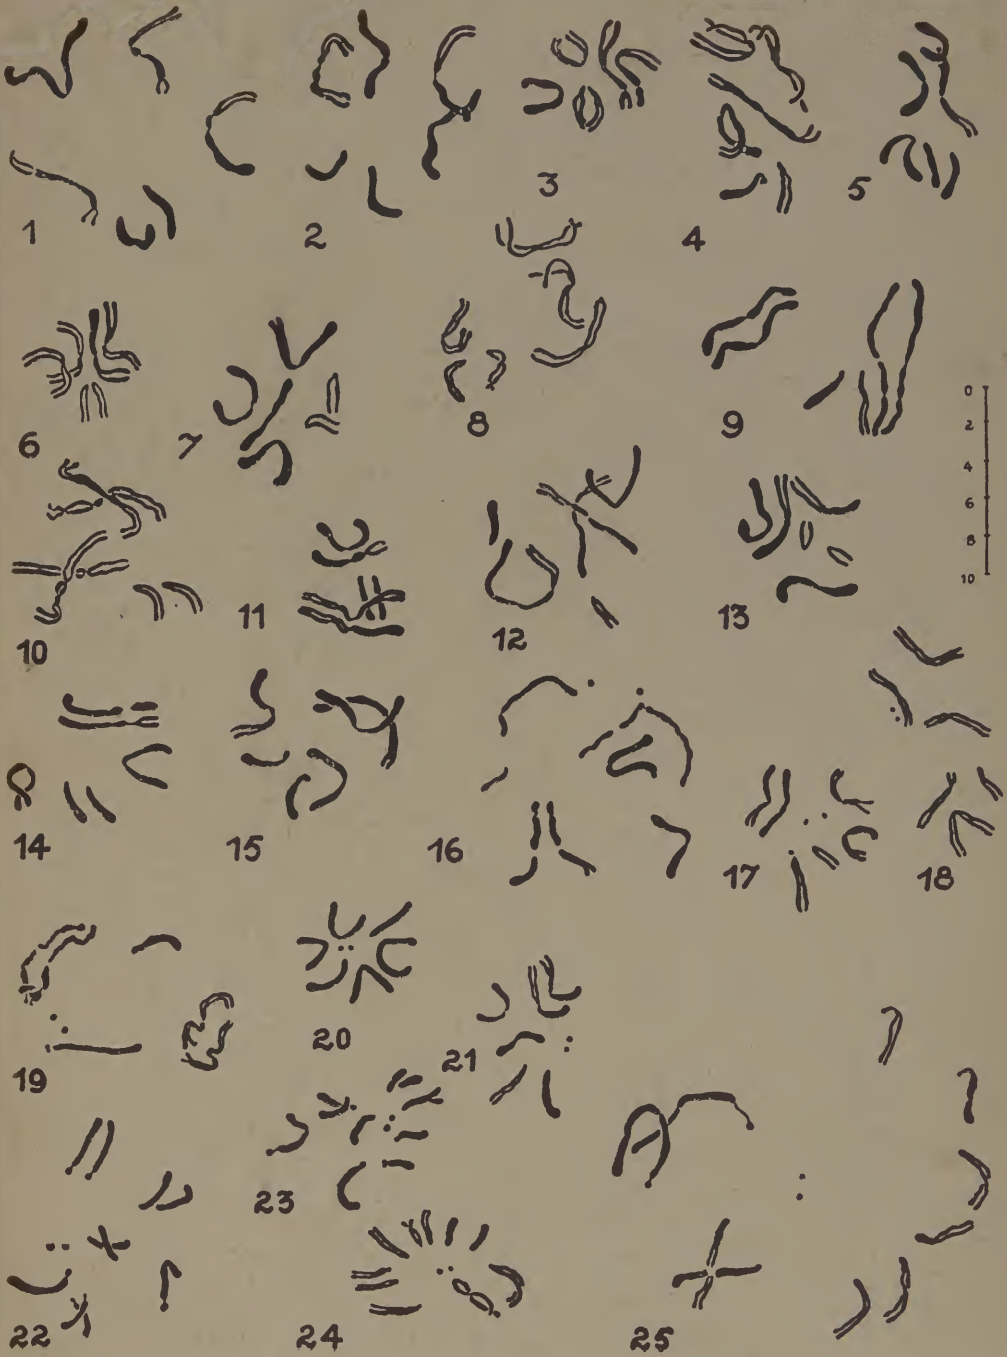 1
2
3
4
5
6
7
8
9
0
2
4
6
8
10
10
11
12
13
14
15
16
17
18
19
20
21
22
23
24
25